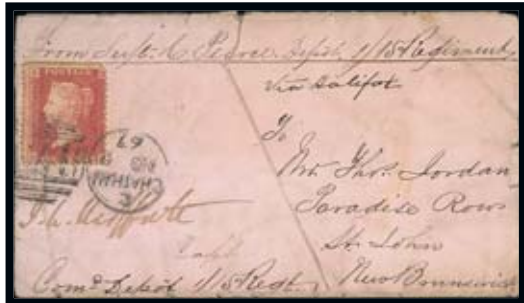 From Serjt. C Pearce Depôt. 1/15 Regiment
Via Halifax
To
Mr. Thos. Jordan
Paradise Row
St. John
New Brunswick
POSTAGE
CHATHAM
C
67
Comg Depôt 1/15 Regt.